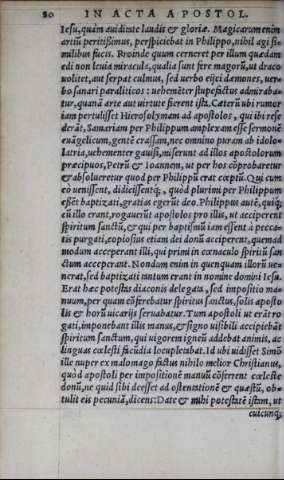 80 IN ACTA APOSTOL.
Iesu, quàm auidissíte laudis & gloriæ. Magicarum enim
artiũ peritißimus, perspiciebat in Philippo, nihil agi si-
milibus fucis. Proinde quum cerneret per illum quædam
edi non leuia miracula, qualia sunt fere magorũ, ut draco
uolitet, aut serpat culmus, sed uerbo eijci dæmones, uer-
bo sanari paraliticos: uehemẽter stupefactus admiraba-
tur, quanã arte aut uirtute fierent ista. Cæterũ ubi rumor
iam pertulisset Hierosolymam ad apostolos, qui ibi rese
derãt, Samariam per Philippum amplexam esse sermonẽ
euãgelicum, gentẽ crassam, nec omnino puram ab idolo-
latria, uehementer gauisi, miserunt ad illos apostolorum
præcipuos, Petrũ & Ioannem, ut per hos cõprobaretur
& absolueretur quod per Philippũ erat cœptũ. Qui cum
eò uenissent, didicissentq́;, quòd plurimi per Philippum
eßẽt baptizati, gratias egerũt deo. Philippus autẽ, quiq́;
cũ illo erant, rogauerũt apostolos pro illis, ut acciperent
spiritum sanctũ, & qui per baptismũ iam essent à pecca-
tis purgati, copiosius etiam dei donũ acciperent, quemad
modum acceperant illi, qui primi in cœnaculo spiritũ san
ctum acceperant. Nondum enim in quenquam illorũ ue-
nerat, sed baptizati tantum erant in nomine domini Iesu.
Erat hæc potestas diaconis delegata, sed impositio ma-
nuum, per quam cõferebatur spiritus sanctus, solis aposto
lis & horũ uicarijs seruabatur. Tum apostoli ut erãt ro-
gati, imponebant illis manus, & signo uisibili accipiebãt
spiritum sanctum, qui uigorem igneũ addebat animis, ac
linguas cœlesti facũdia locupletabat. Id ubi uidisset Simõ
ille nuper ex malomago factus nihilo melior Christianus,
quòd apostoli per impositionẽ manuũ cõferrent cœleste
donũ, ne quid sibi deesset ad ostentationẽ & quæstũ, ob-
tulit eis pecuniã, dicens: Date & mihi potestatẽ istam, ut
cuicunq́;